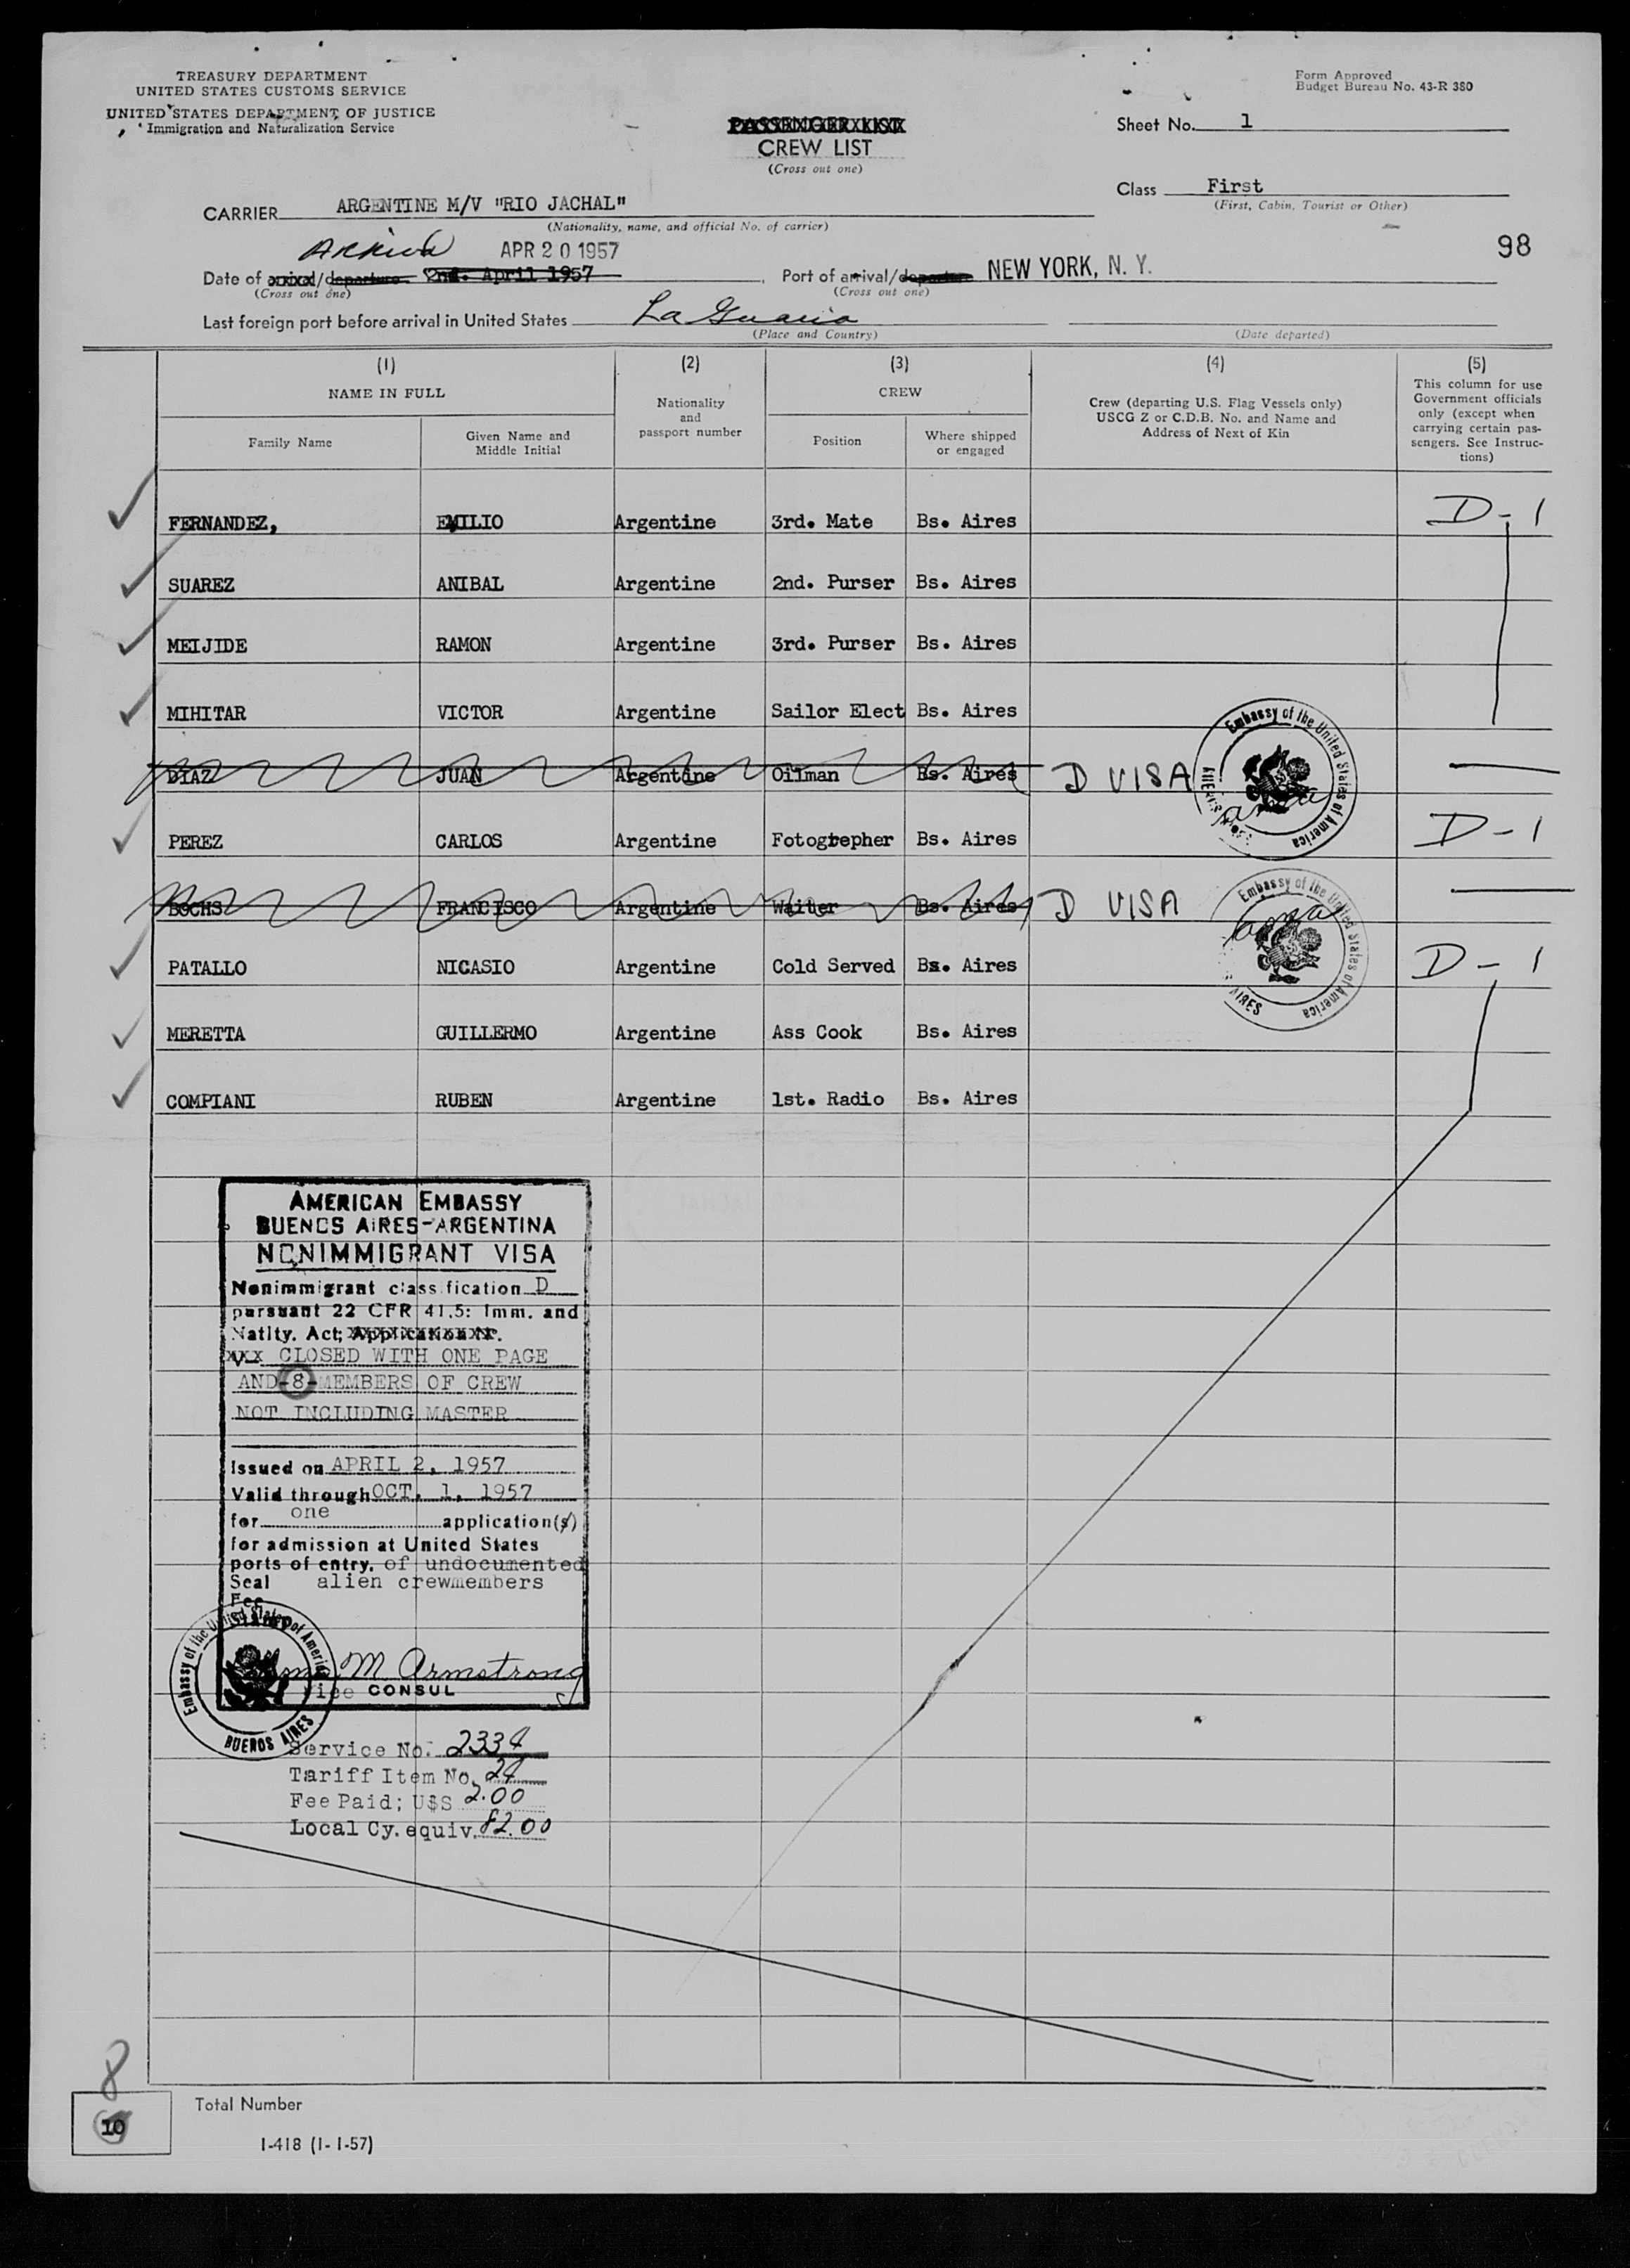 TREASURY DEPARTMENT
UNITED STATES CUSTOMS SERVICE
UNITED STATES DEPARTMENT OF JUSTICE
Immigration and Naturalization Service
Form Approved
Budget Bureau No. 43-R 380
PASSENGER LIST
CREW LIST
(Cross out one)
Sheet No. 1
Class First
(First, Cabin, Tourist or Other)
CARRIER ARGENTINE M/V "RIO JACHAL"
(Nationality, name, and official No. of carrier)
98
Arrived APR 20 1957
Date of arrival/departure 2nd. April 1957, Port of arrival/departure NEW YORK, N. Y.
(Cross out one) (Cross out one)
Last foreign port before arrival in United States La Guaria
(Place and Country) (Date departed)
(1) (2) (3) (4) (5)
NAME IN FULL
Nationality
and
passport number
CREW
Crew (departing U.S. Flag Vessels only)
USCG Z or C.D.B. No. and Name and
Address of Next of Kin
This column for use
Government officials
only (except when
carrying certain pas-
sengers. See Instruc-
tions)
Family Name
Given Name and
Middle Initial
Position
Where shipped
or engaged
FERNANDEZ, EMILIO Argentine 3rd. Mate Bs. Aires D-1
SUAREZ ANIBAL Argentine 2nd. Purser Bs. Aires
MEIJIDE RAMON Argentine 3rd. Purser Bs. Aires
MIHITAR VICTOR Argentine Sailor Elect Bs. Aires
DIAZ JUAN Argentine Oilman Bs. Aires D VISA
Embassy of the United States of America
PEREZ CARLOS Argentine Fotogrepher Bs. Aires D-1
BOCHS FRANCISCO Argentine Waiter Bs. Aires D VISA
Embassy of the United States of America
AIRES
PATALLO NICASIO Argentine Cold Served Bs. Aires D-1
MERETTA GUILLERMO Argentine Ass Cook Bs. Aires
COMPIANI RUBEN Argentine 1st. Radio Bs. Aires
AMERICAN EMBASSY
BUENOS AIRES-ARGENTINA
NONIMMIGRANT VISA
Nonimmigrant classification D
pursuant 22 CFR 41.5: Imm. and
Natlty. Act; Applicant XXX.
XXX CLOSED WITH ONE PAGE
AND -8- MEMBERS OF CREW
NOT INCLUDING MASTER
Issued on APRIL 2, 1957
Valid through OCT. 1, 1957
for one application(s)
for admission at United States
ports of entry. of undocumented
Seal alien crewmembers
Fee
Stamp
M Armstrong
Vice CONSUL
Embassy of the United States of America
BUENOS AIRES
Service No. 2334
Tariff Item No. 24
Fee Paid; U$S 2.00
Local Cy. equiv. 82.00
8
10
Total Number
I-418 (1-1-57)